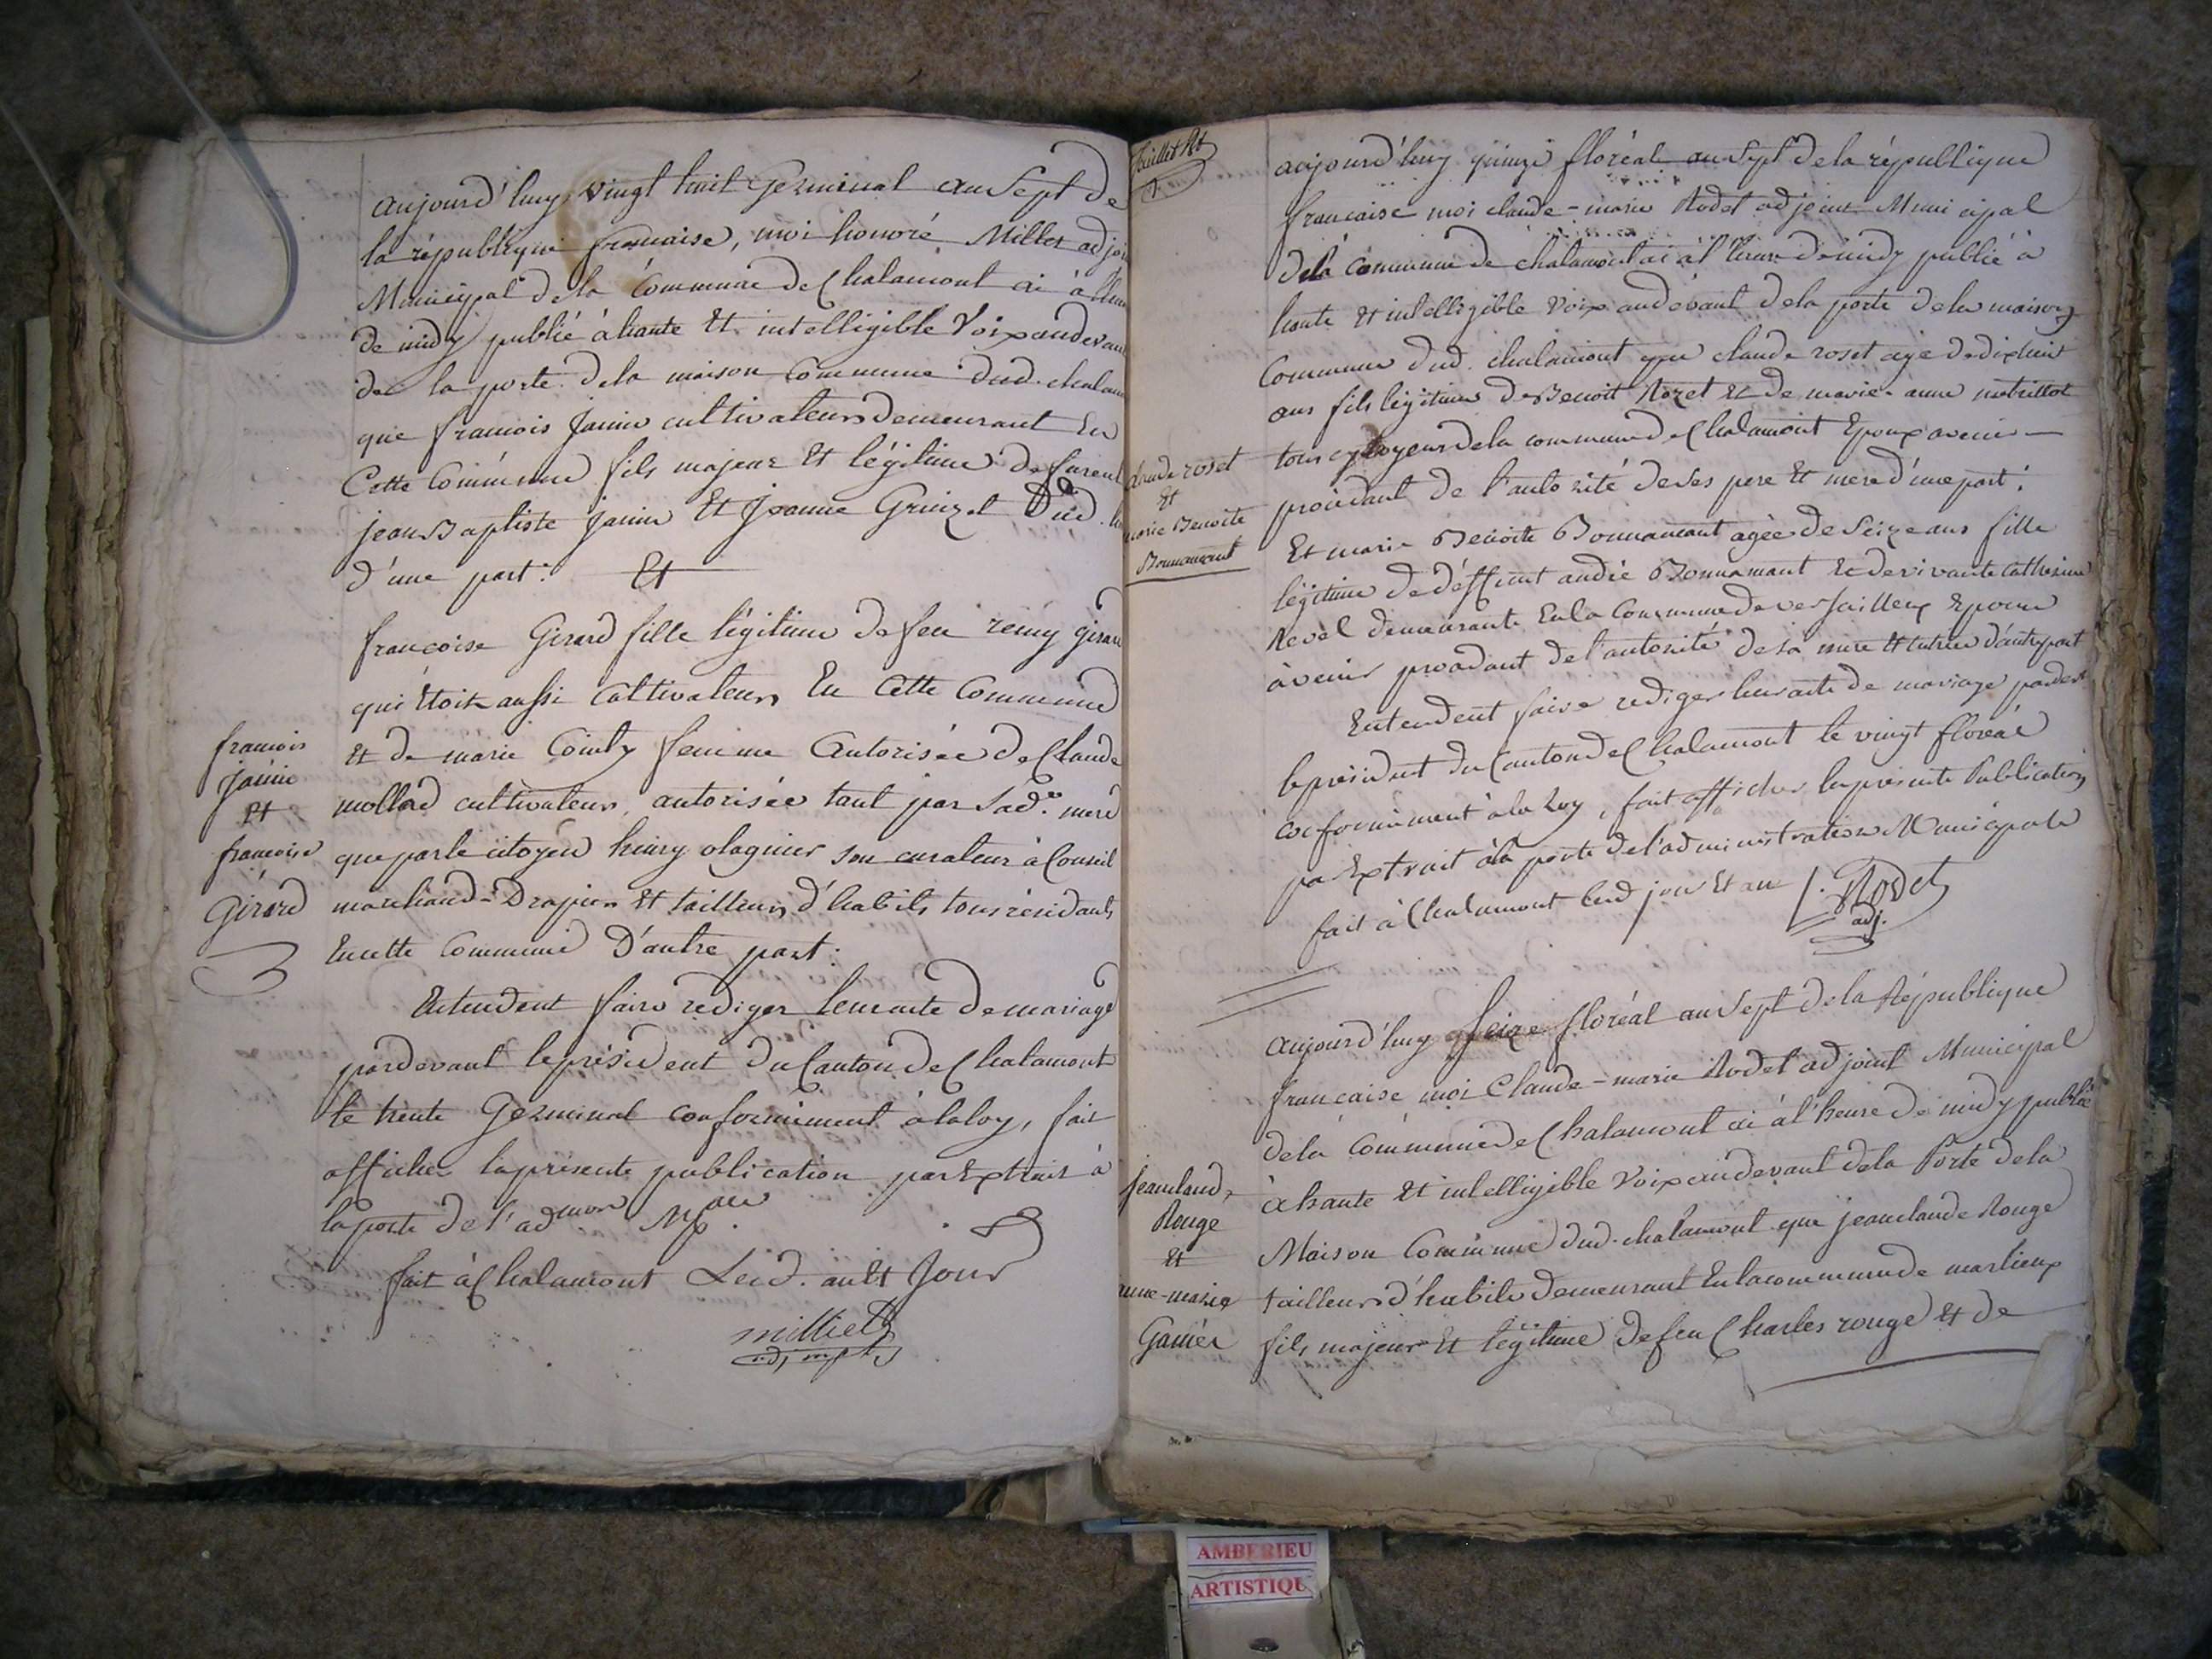 aujourd'huy vingt huit Germinal an Sept de
la république francaise, moi honoré Milliet adjoi
Municipal dela Commune de Chalamont ai à lheu
de midy publié à haute Et intelligible Voix audevan
de la porte dela maison Commune dud. chalam
que francois Janin cultivateur demeurant En
Cette Commune fils majeur Et légitime de furent
jean Baptiste janin Et Jeanne Grinzet
d'une part: Et
francoise Girard fille légitime de feu remy girar
qui Etoit aussi Cultivateur En Cette Commune
Et de marie Cointy femme Autorisée de Claude
mollard cultivateur, autorisée tant par Sad.e mere
que par le citoyen henry olagnier son curateur à Conseil
marchand-Drapier Et tailleur d'habits tous résidants
En cette Commune D'autre part:
Entendent faire rediger leur acte de mariage
pardevant le président du Canton de Chalamont
le trente Germinal conformément à la loy, fait
afficher la présente publication par Extrait à
la porte de l'admon Mpale
fait à Chalamont Lesd. an Et Jour
milliet
adj mpl
francois
janin
Et
francoise
Girard
feuillet
1
aujourd'huy quinze floréal an Sept de la république
francaise moi claude-marie Rodet adjoint Municipal
dela Commune de chalamont ai à l'heure de midy publié à
haute Et intelligible Voix audevant dela porte dela maison
Commune dud. chalamont que claude roset agé de dixhuit
ans fils légitime de Benoit Rozet Et de marie-anne
tous cytoyens dela commune de Chalamont Epoux avenir
procédant de l'autorité de Ses pere Et mere d'une part:
Et marie Benoite Bonnamant agée de Seize ans fille
légitime de déffunt andré Bonnamant Et de vivante Catherine
Revel demeurante En la Commune de versailleux Epouse
à venir procédant de l'autorité de sa mere Et tutrice d'autre part
Entendent faire rediger leur acte de mariage pardevt
le président du Canton de Chalamont le vingt floréal
conformément à la Loy, fait afficher la présente Publication
par Extrait à la porte de l'administration Municipale
fait à Chalamont lesd jour Et an Rodet
adj.
Claude roset
Et
marie Benoite
Bonnamant
aujourd'huy Seize floréal an Sept de la République
francaise moi Claude-marie Rodet adjoint Municipal
dela Commune de Chalamont ai à l'heure de midy publié
à haute Et intelligible Voix audevant dela Porte dela
Maison Commune dud. chalamont que jeanclaude Rouge
tailleur d'habits demeurant En la commune de marlieux
fils majeur Et légitime de feu Charles rouge Et de
jeanclaude
Rouge
Et
anne-marie
Garnier
AMBERIEU
ARTISTIQU